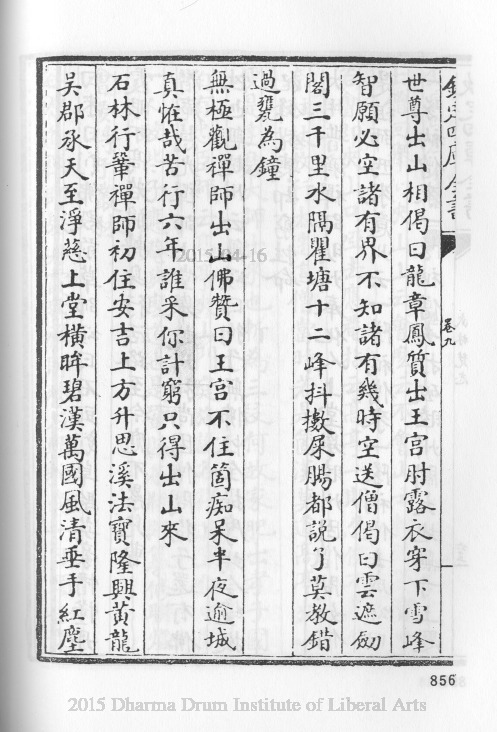 欽定四庫全書
卷九
世尊出山相偈曰龍章鳳質出王宮肘露衣穿下雪峰
智願必空諸有界不知諸有幾時空送僧偈曰雲遮劍
閣三千里水隔瞿塘十二峰抖擻屎腸都說了莫教錯
過甕為鐘
無極觀禪師出山佛贊曰王宮不住箇痴呆半夜逾城
真怪哉苦行六年誰采你計窮只得出山來
石林行鞏禪師初住安吉上方升思溪法寶隆興黃龍
吳郡承天至淨慈上堂橫眸碧漢萬國風清垂手紅塵
856
2015-04-16
2015 Dharma Drum Institute of Liberal Arts